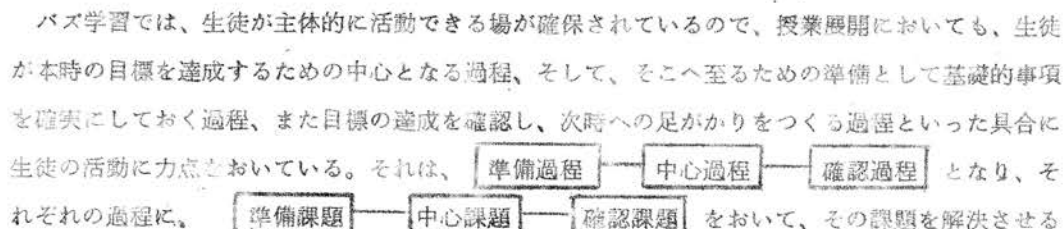 バズ学習では、生徒が主体的に活動できる場が確保されているので、授業展開においても、生徒
が本時の目標を達成するための中心となる過程、そして、そこへ至るための準備として基礎的事項
を確実にしておく過程、また目標の達成を確認し、次時への足がかりをつくる過程といった具合に
生徒の活動に力点をおいている。それは、 準備過程 中心過程 確認過程 となり、そ
れぞれの過程に。 準備課題 中心課題 確認課題 をおいて、その課題を解決させる